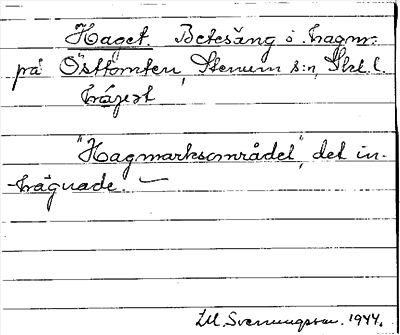 Haget. Betesäng i hagm.
på Östtomten, Stenum s:n, Skl. l.
hágest
"Hagmarksområdet", det in-
-hägnade. —
M. Svenningson. 1944.